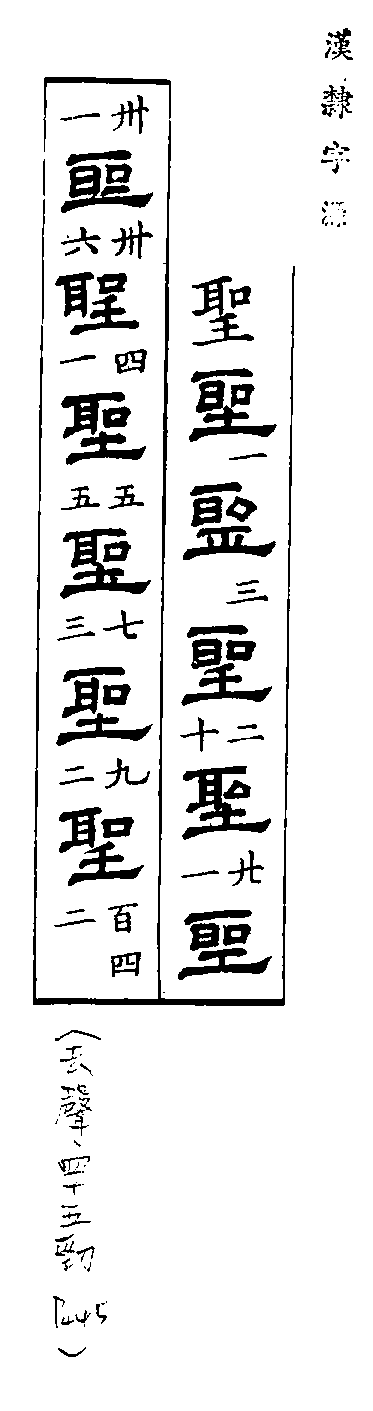 漢隸字源
聖聖一聖三聖二十聖廿一聖
卅一聖卅六聖四一聖五五聖七三聖九二聖百四二
(去聲、四十五勁 P445)